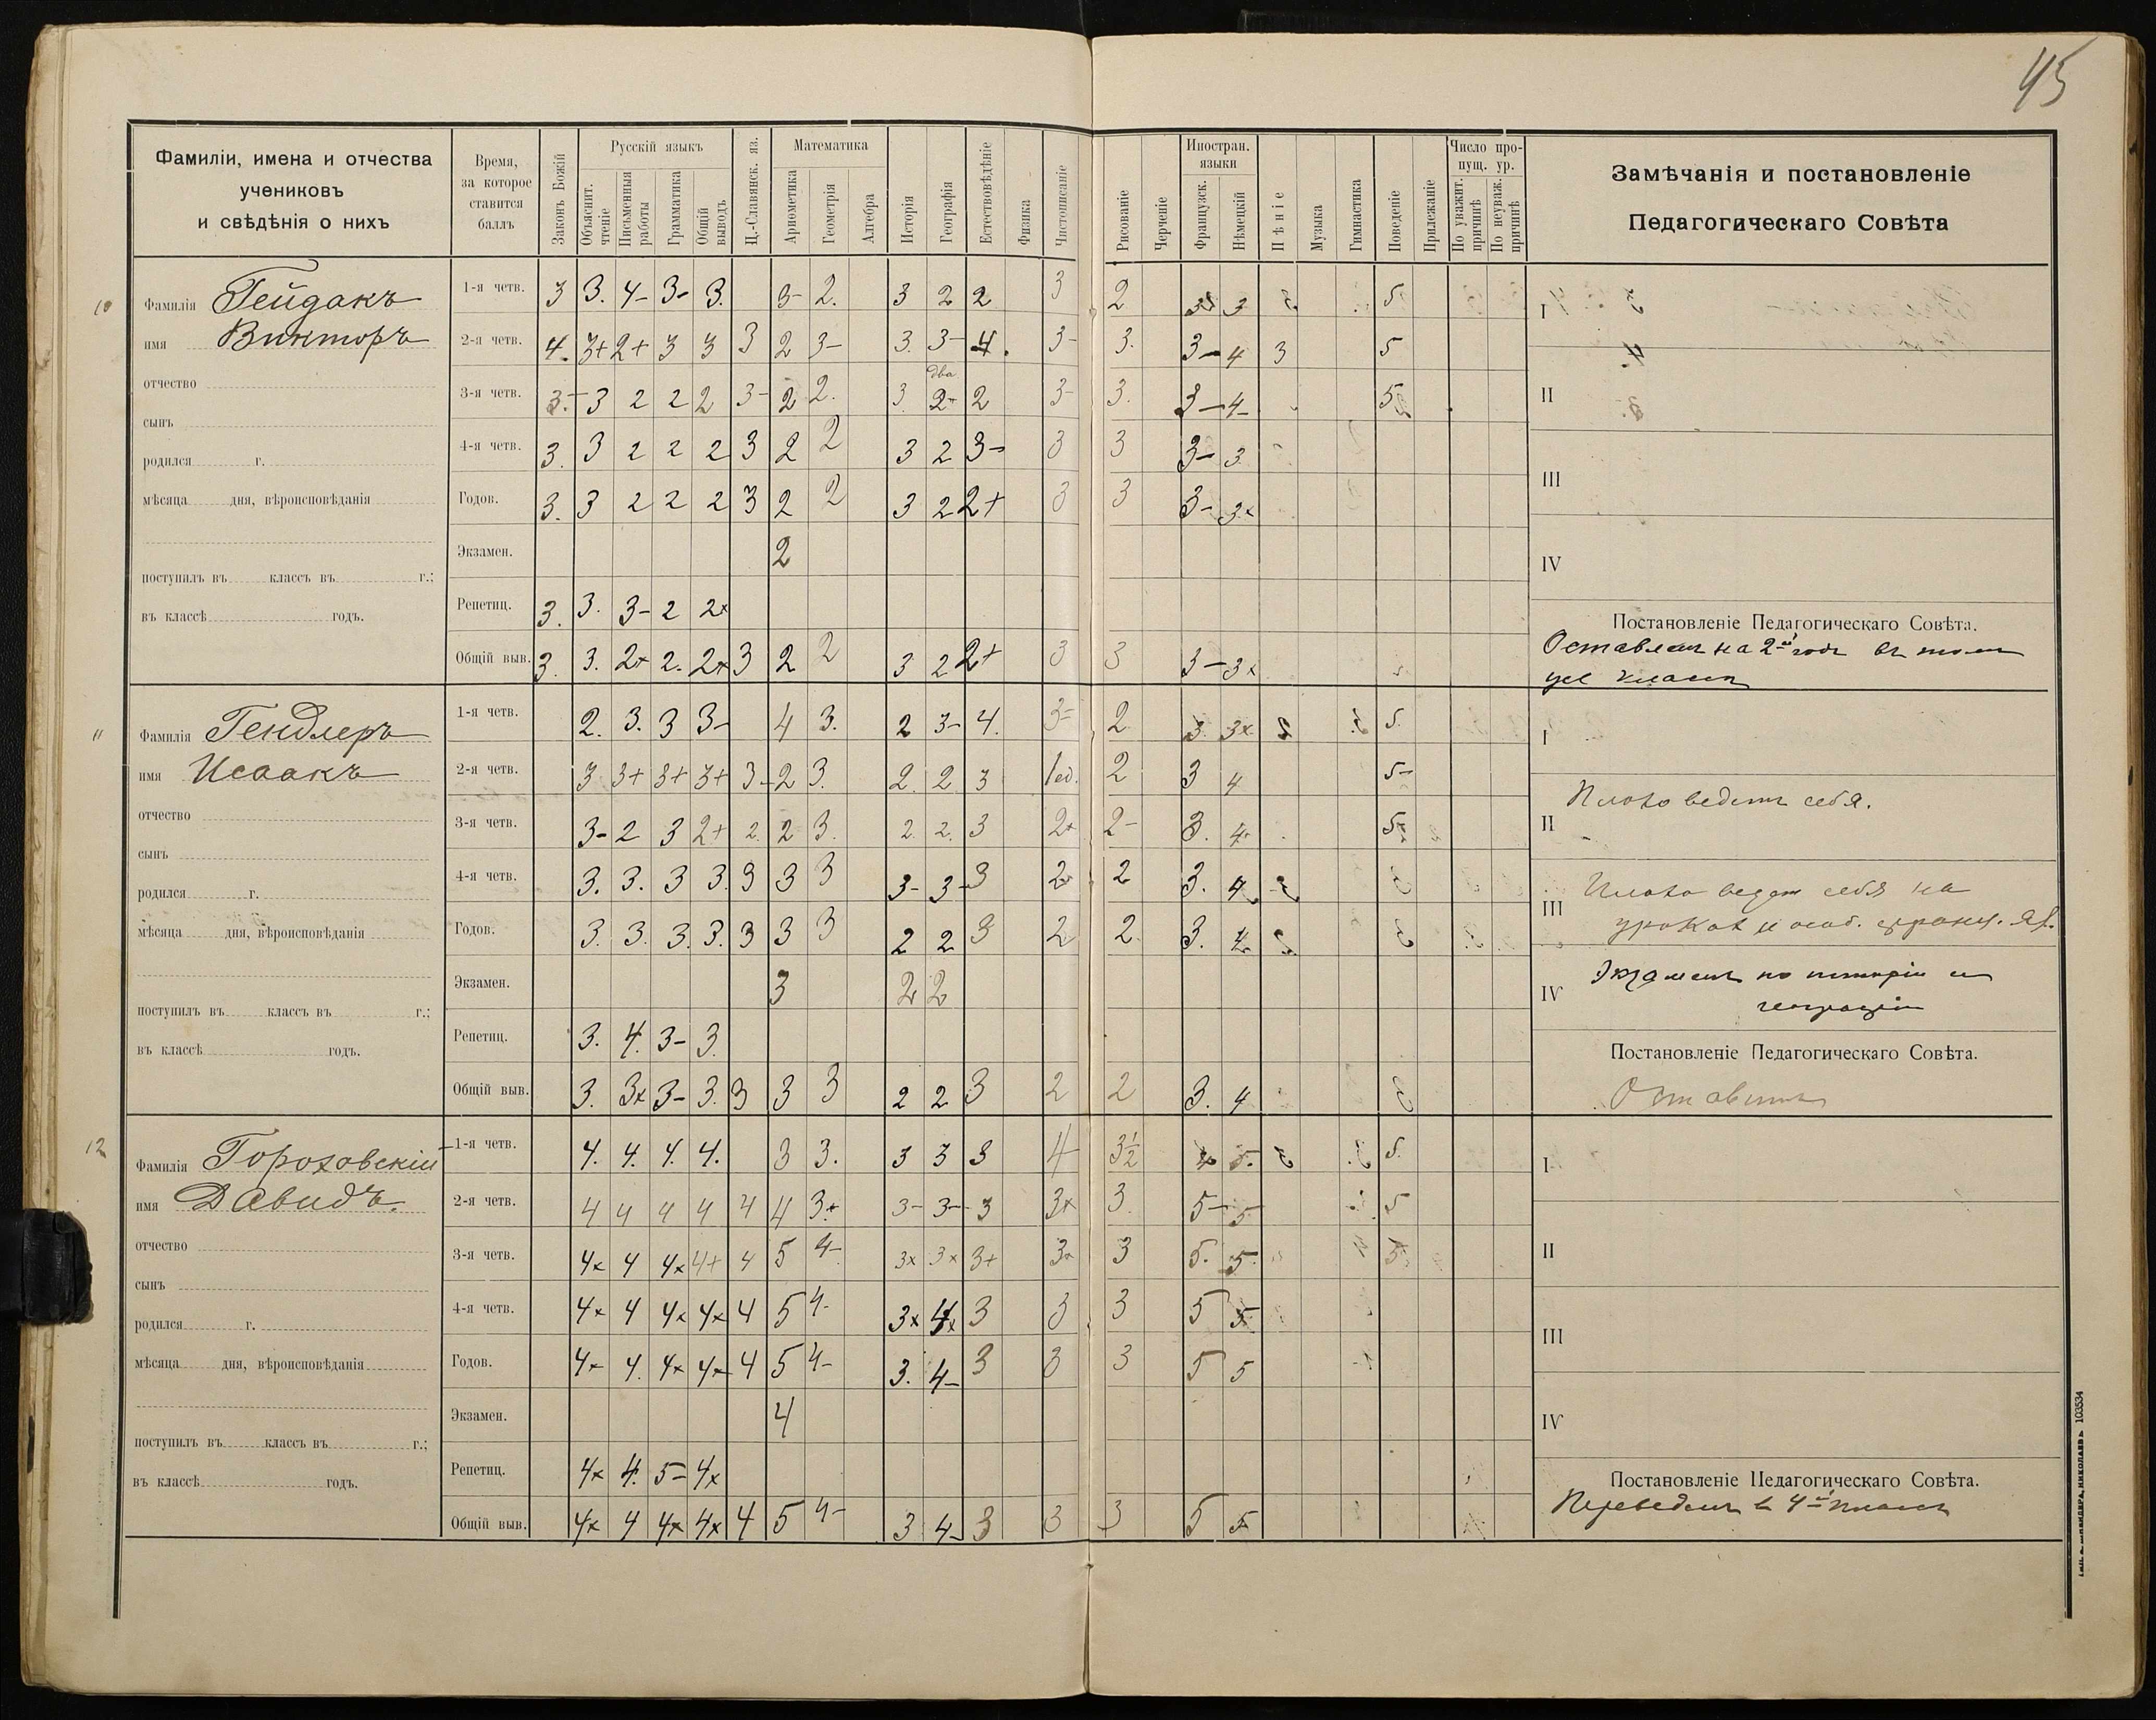 45
Фамиліи, имена и отчества
учениковъ
и свѣдѣнія о нихъ
Время,
за которое
ставится
баллъ
Законъ Божій
Русскій языкъ
Объяснит. чтеніе
Письменныя работы
Грамматика
Общій выводъ
Ц.-Славянск. яз.
Математика
Ариѳметика
Геометрія
Алгебра
Исторія
Географія
Естествовѣдѣніе
Физика
Чистописаніе
Рисованіе
Черченіе
Иностран.
языки
Французск.
Нѣмецкій
Пѣніе
Музыка
Гимнастика
Поведеніе
Прилежаніе
Число про-
пущ. ур.
По уважит. причинѣ
По неуваж. причинѣ
Замѣчанія и постановленіе
Педагогическаго Совѣта
10
Фамилія Гейдакъ
имя Викторъ
отчество
сынъ
родился г.
мѣсяца дня, вѣроисповѣданія
поступилъ въ классъ въ г.;
въ классѣ годъ.
1-я четв. 3 3. 4- 3- 3. 3- 2. 3 2 2 3 2 3 5
2-я четв. 4. 3+ 2+ 3 3 3 2 3- 3. 3- 4. 3- 3. 3- 4 3 5
два
3-я четв. 3.- 3 2 2 2 3- 2 2. 3 2+ 2 3- 3. 3- 4- 5
4-я четв. 3. 3 2 2 2 3 2 2 3 2 3- 3 3 3- 3
Годов. 3. 3 2 2 2 3 2 2 3 2 2+ 3 3 3- 3×
Экзамен. 2
Репетиц. 3. 3. 3- 2 2×
Общій выв. 3. 3. 2+ 2. 2× 3 2 2 3 2 2+ 3 3 3- 3×
I
II
III
IV
Постановленіе Педагогическаго Совѣта.
Оставленъ на 2-й годъ въ томъ
же классѣ
11
Фамилія Гендлеръ
имя Исаакъ
отчество
сынъ
родился г.
мѣсяца дня, вѣроисповѣданія
поступилъ въ классъ въ г.;
въ классѣ годъ.
1-я четв. 2. 3. 3 3- 4 3. 2 3- 4. 3- 2 3. 3× 5.
2-я четв. 3 3+ 3+ 3+ 3- 2 3. 2. 2 3 1ед. 2 3 4 5-
3-я четв. 3- 2 3 2+ 2. 2 3. 2. 2. 3 2+ 2- 3. 4. 5
4-я четв. 3. 3. 3 3. 3 3 3 3- 3- 3 2 2 3. 4
Годов. 3. 3. 3. 3. 3 3 3 2 2 3 2 2. 3. 4
Экзамен. 3 2 2
Репетиц. 3. 4. 3- 3.
Общій выв. 3. 3× 3- 3. 3 3 3 2 2 3 2 2 3. 4
I
Плохо ведетъ себя.
II
Плохо ведет себя на
III
уроках и особ. франц. яз.
Экзаменъ по исторіи и
IV
географіи
Постановленіе Педагогическаго Совѣта.
Оставить
12
Фамилія Гороховскій
имя Давидъ.
отчество
сынъ
родился г.
мѣсяца дня, вѣроисповѣданія
поступилъ въ классъ въ г.;
въ классѣ годъ.
1-я четв. 4. 4. 4. 4. 3 3. 3 3 3 4 3½ 4 5. 5.
2-я четв. 4 4 4 4 4 4 3.+ 3- 3- 3 3× 3. 5- 5 5
3-я четв. 4× 4 4× 4+ 4 5 4- 3× 3× 3+ 3× 3 5. 5. 5
4-я четв. 4× 4 4× 4× 4 5 4- 3× 4× 3 3 3 5 5
Годов. 4× 4. 4× 4× 4 5 4- 3. 4- 3 3 3 5 5
Экзамен. 4
Репетиц. 4× 4. 5- 4×
Общій выв. 4× 4 4× 4× 4 5 4- 3 4- 3 3 3 5 5
I
II
III
IV
Постановленіе Педагогическаго Совѣта.
Переведенъ в 4-й классъ
103534